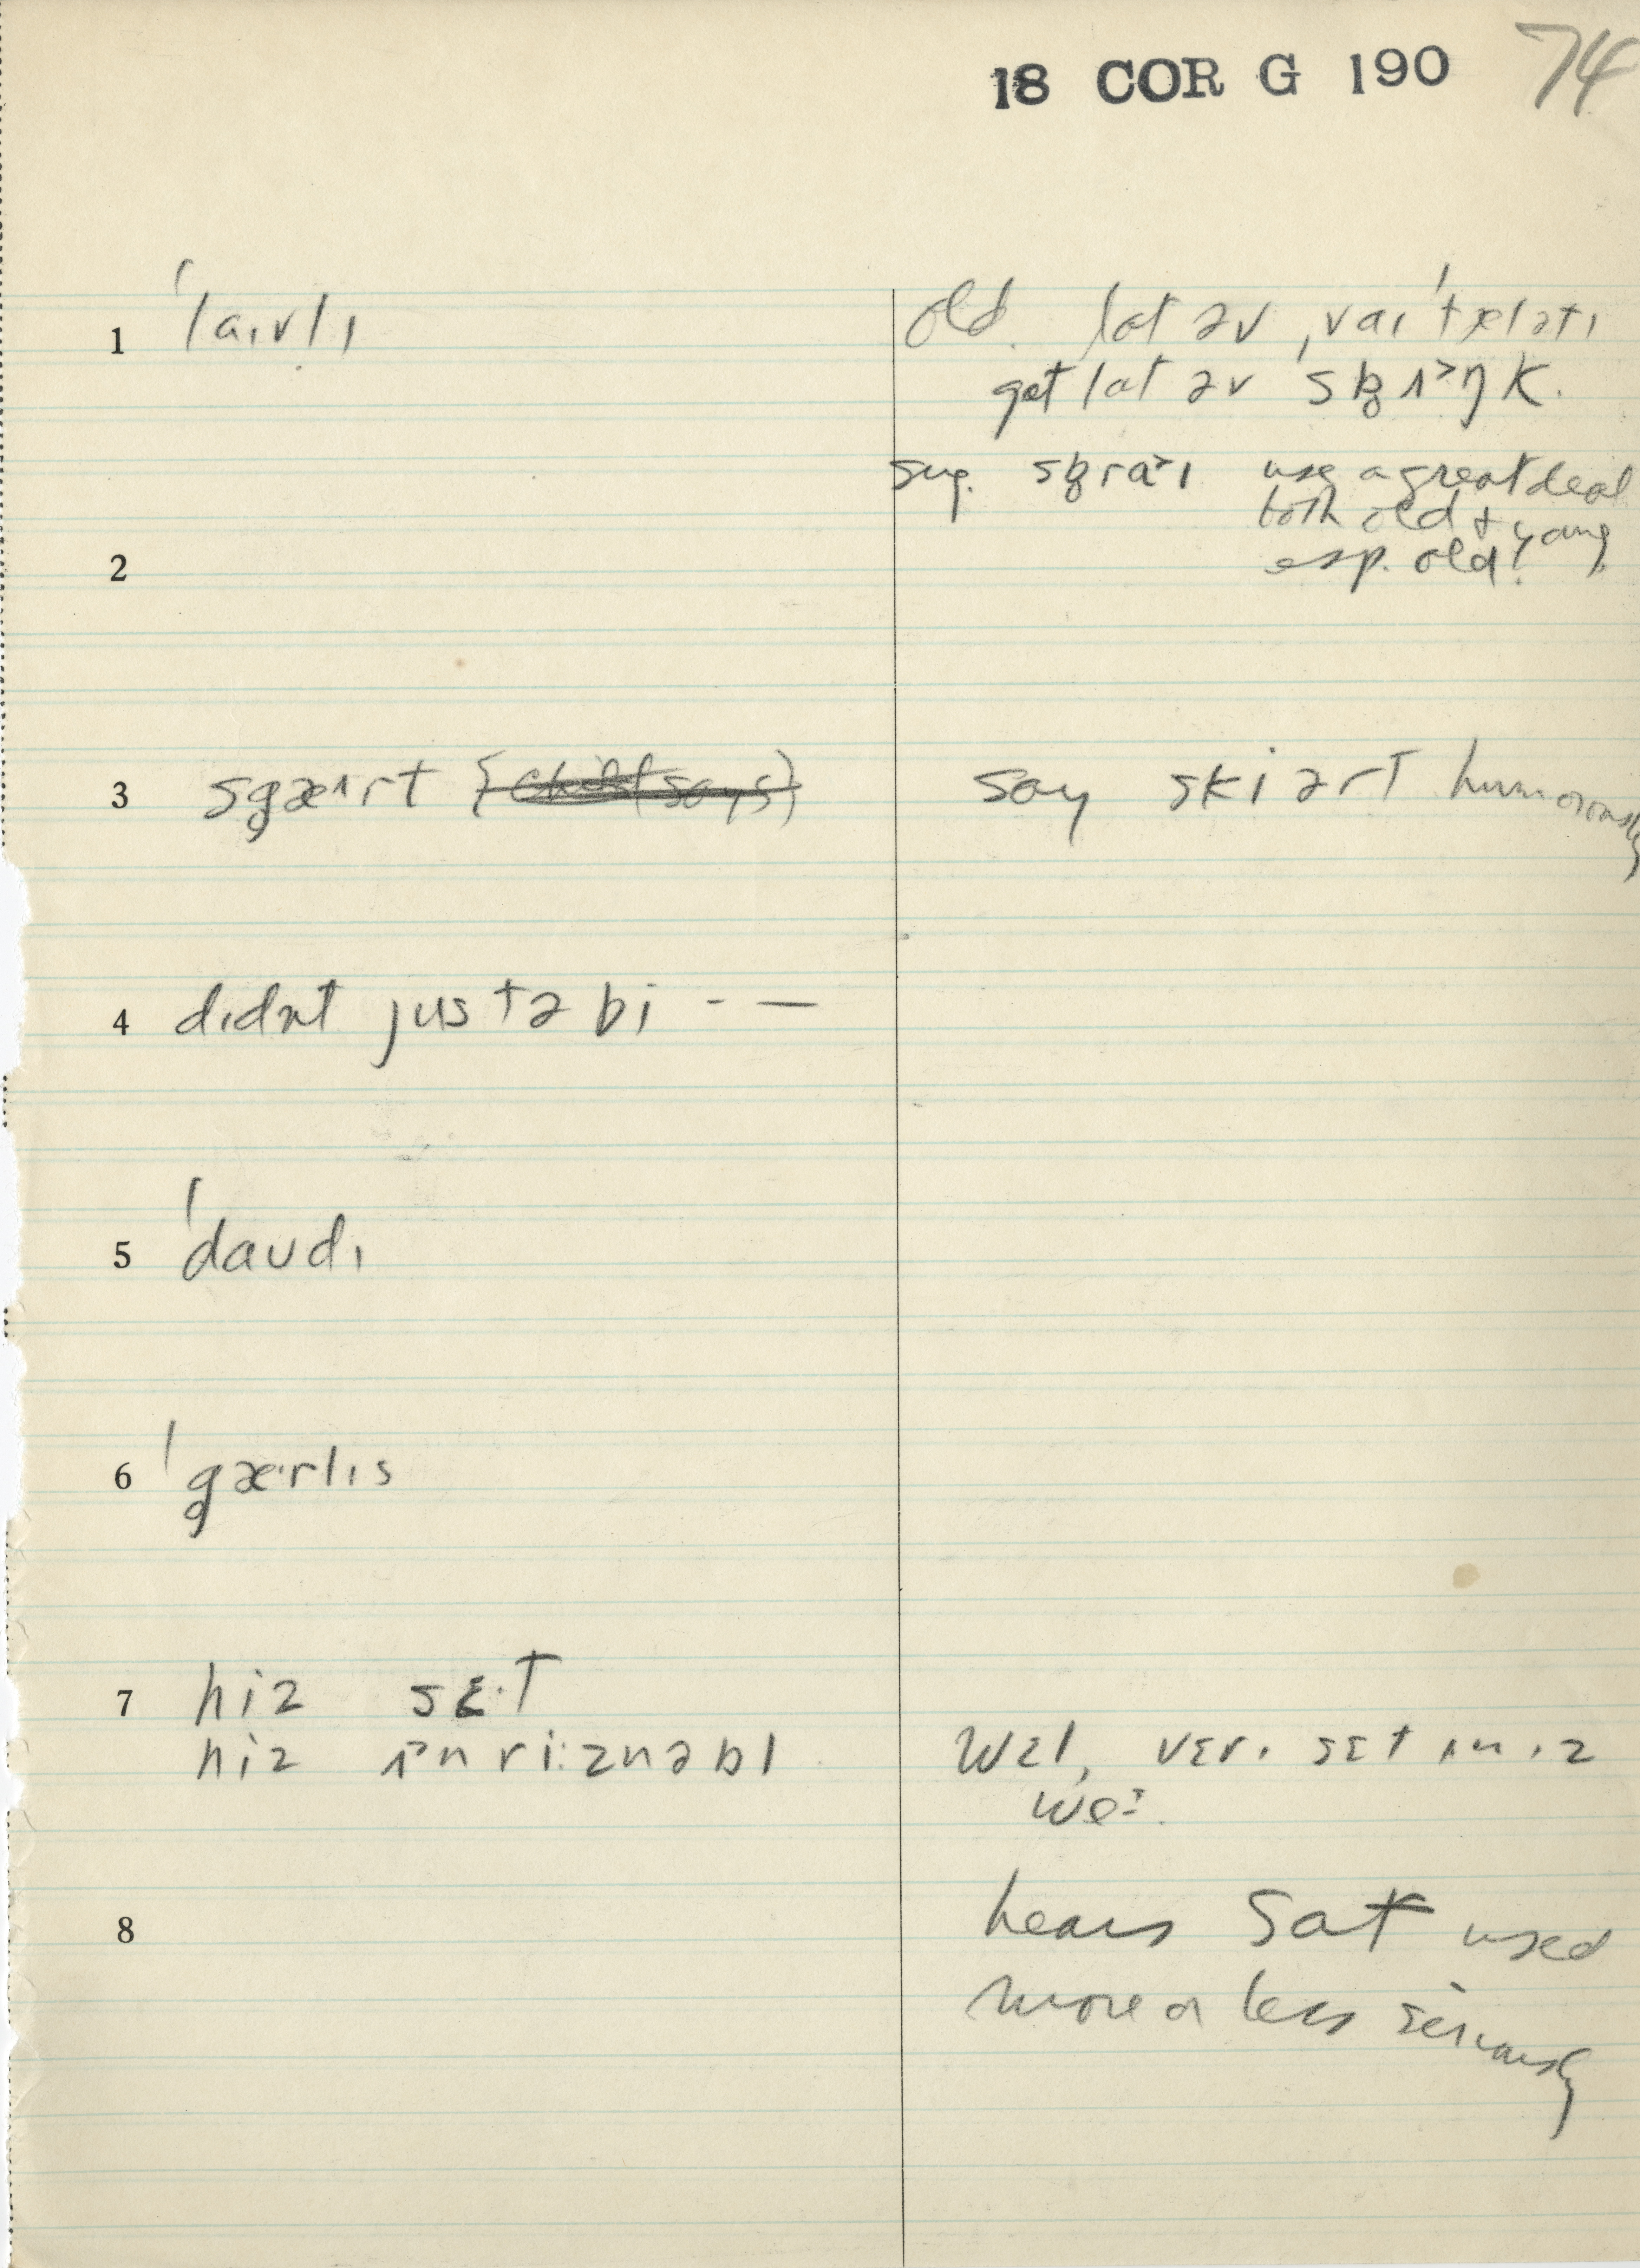 18 COR G 190 74
1 ˈlaɪvlɪ old. lɑt əv ˌvaɪˈtælətɪ
get lɑt əv sb̥ɪ˃ŋk.
sug. sb̥raɪ use a great deal
both old & young
2 esp. old!
3 sg̥æɪrt {child says} say skiərt humorously
4 dɪdnt justəbi - —
5 ˈdaudɪ
6 ˈg̥æ·rlɪs
7 hiz sɛ·t
hiz ɪ˃nri:znəbl wɛl, vɛrɪ sɛt ɪn ɪz
we:.
8 hears sɑt used
more or less seriously